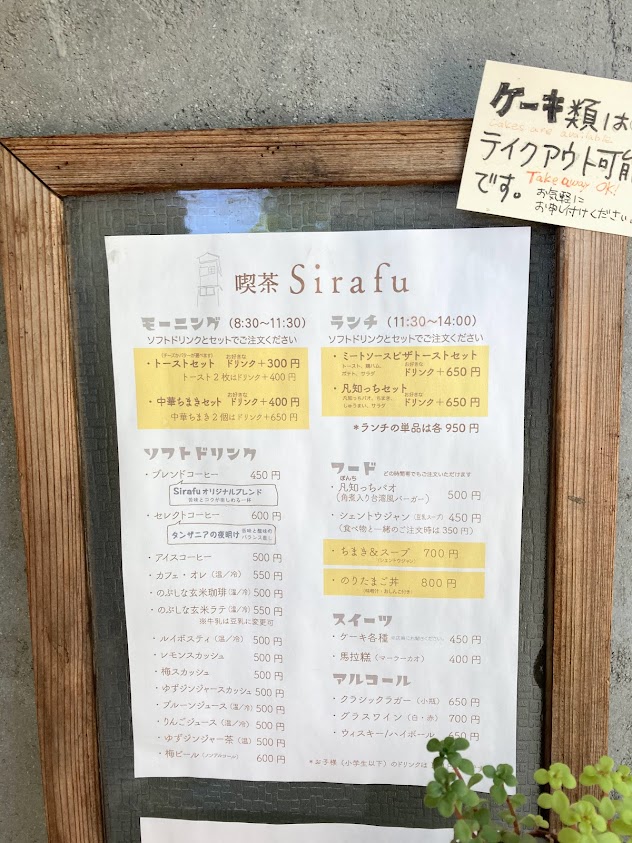 ケーキ類は
cakes are available
テイクアウト可能
Take away OK!
です。
お気軽に
お申し付けください。
喫茶 Sirafu
モーニング (8:30〜11:30)
ソフトドリンクとセットでご注文ください
・トーストセット お好きなドリンク+300円
トースト2枚はドリンク+400円
・中華ちまきセット お好きなドリンク+400円
中華ちまき2個はドリンク+650円
ソフトドリンク
・ブレンドコーヒー 450円
Sirafuオリジナルブレンド
・セレクトコーヒー 600円
タンザニアの夜明け
・アイスコーヒー 500円
・カフェ・オレ (温/冷) 550円
・のぶしな玄米珈琲 (温/冷) 500円
・のぶしな玄米ラテ (温/冷) 550円
※牛乳は豆乳に変更可
・ルイボスティ (温/冷) 500円
・レモンスカッシュ 500円
・梅スカッシュ 500円
・ゆずジンジャースカッシュ 500円
・プルーンジュース (温/冷) 500円
・りんごジュース (温/冷) 500円
・ゆずジンジャー茶 (温) 500円
・梅ビール (ノンアルコール) 600円
ランチ (11:30〜14:00)
ソフトドリンクとセットでご注文ください
・ミートソースピザトーストセット
トースト、鶏ハム、
ポテト、サラダ
お好きなドリンク+650円
・凡知っちセット
凡知っちバオ、ちまき、
しゅうまい、サラダ
お好きなドリンク+650円
*ランチの単品は各950円
フード どの時間帯でもご注文いただけます
・凡知っちバオ ぼんち
(角煮入り台湾風バーガー) 500円
・シェントウジャン (豆乳スープ) 450円
(食べ物と一緒のご注文時は350円)
・ちまき&スープ 700円
(シェントウジャン)
・のりたまご丼 800円
(味噌汁・おしんこ付き)
スイーツ
・ケーキ各種 450円
・馬拉糕 (マーラーカオ) 400円
アルコール
・クラシックラガー (小瓶) 650円
・グラスワイン (白・赤) 700円
・ウィスキー/ハイボール 650円
*お子様 (小学生以下) のドリンクは